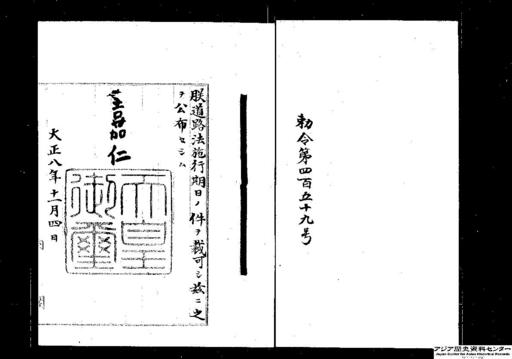 勅令第四百五十九号
朕道路法施行期日ノ件ヲ裁可シ茲ニ之
ヲ公布セシム
嘉仁
天皇御璽
大正八年十一月四日
内閣
アジア歴史資料センター
Japan Center for Asian Historical Records